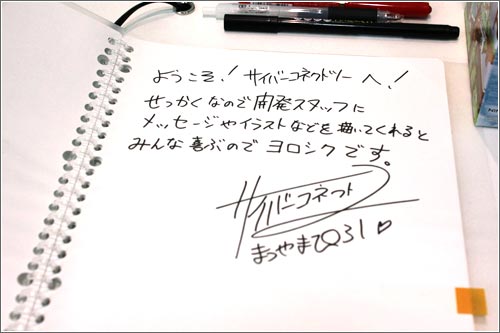 ようこそ! サイバーコネクトツーへ!
せっかくなので開発スタッフに
メッセージやイラストなどを描いてくれると
みんな喜ぶのでヨロシクです。
サイバーコネクト
まつやま